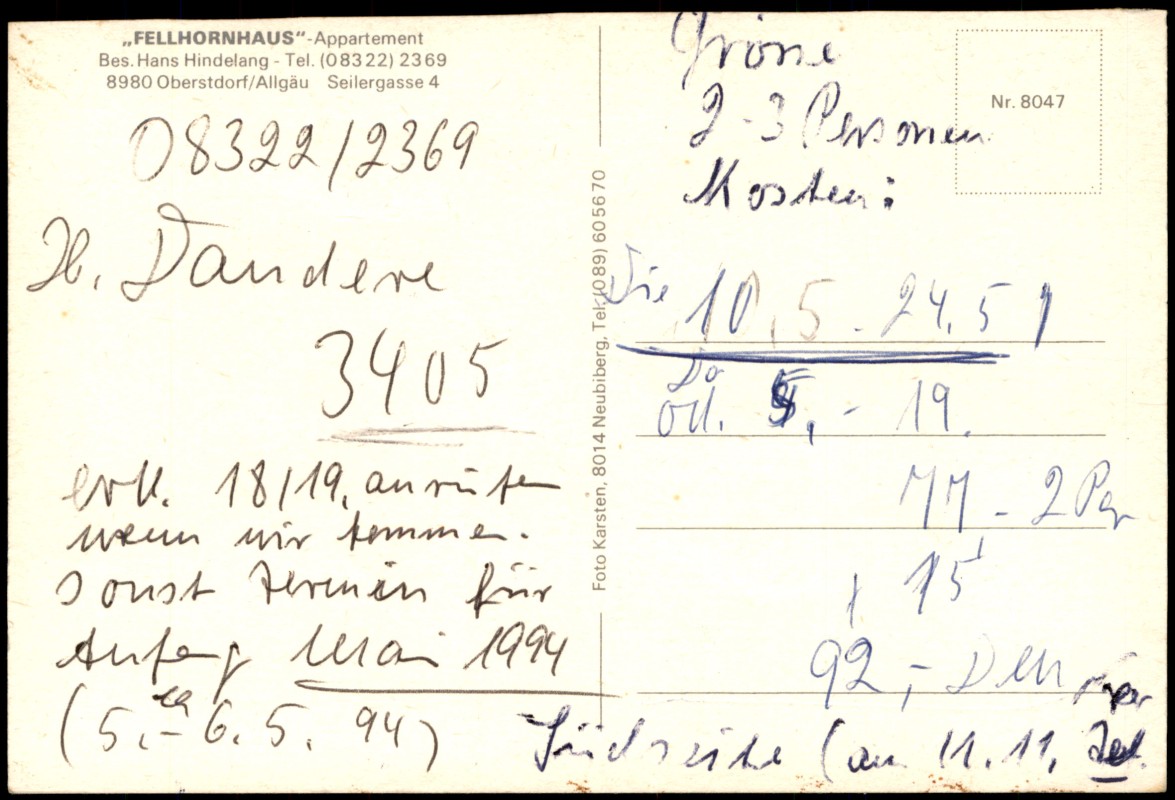 „FELLHORNHAUS“-Appartement
Bes. Hans Hindelang - Tel. (08322) 2369
8980 Oberstdorf/Allgäu Seilergasse 4
08322/2369
3405
18/19. anrufen
wenn wir kommen.
sonst Termin für
Anfang Mai 1994
(5.-6.5. 94)
Foto Karsten, 8014 Neubiberg, Tel. (089) 605670
Nr. 8047
Grösse
2-3 Personen
Kosten:
Die 10.5 - 24.5
Do
od. - 19.
77 - 2 Per
15
92,-
Südseite (am 11.11. Tel.